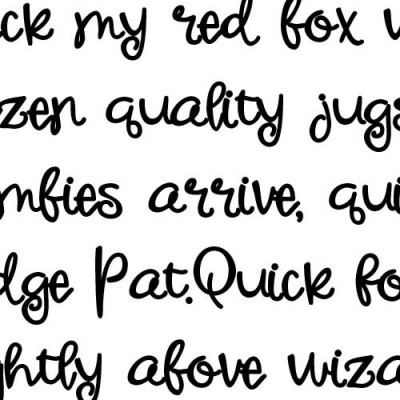 ck my red fox
zen quality jugs
mbies arrive, qui
dge Pat.Quick fo
ghtly above wiza